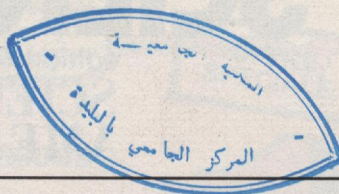 المكتبة الجامعيــة
المركز الجامعي بالبليدة